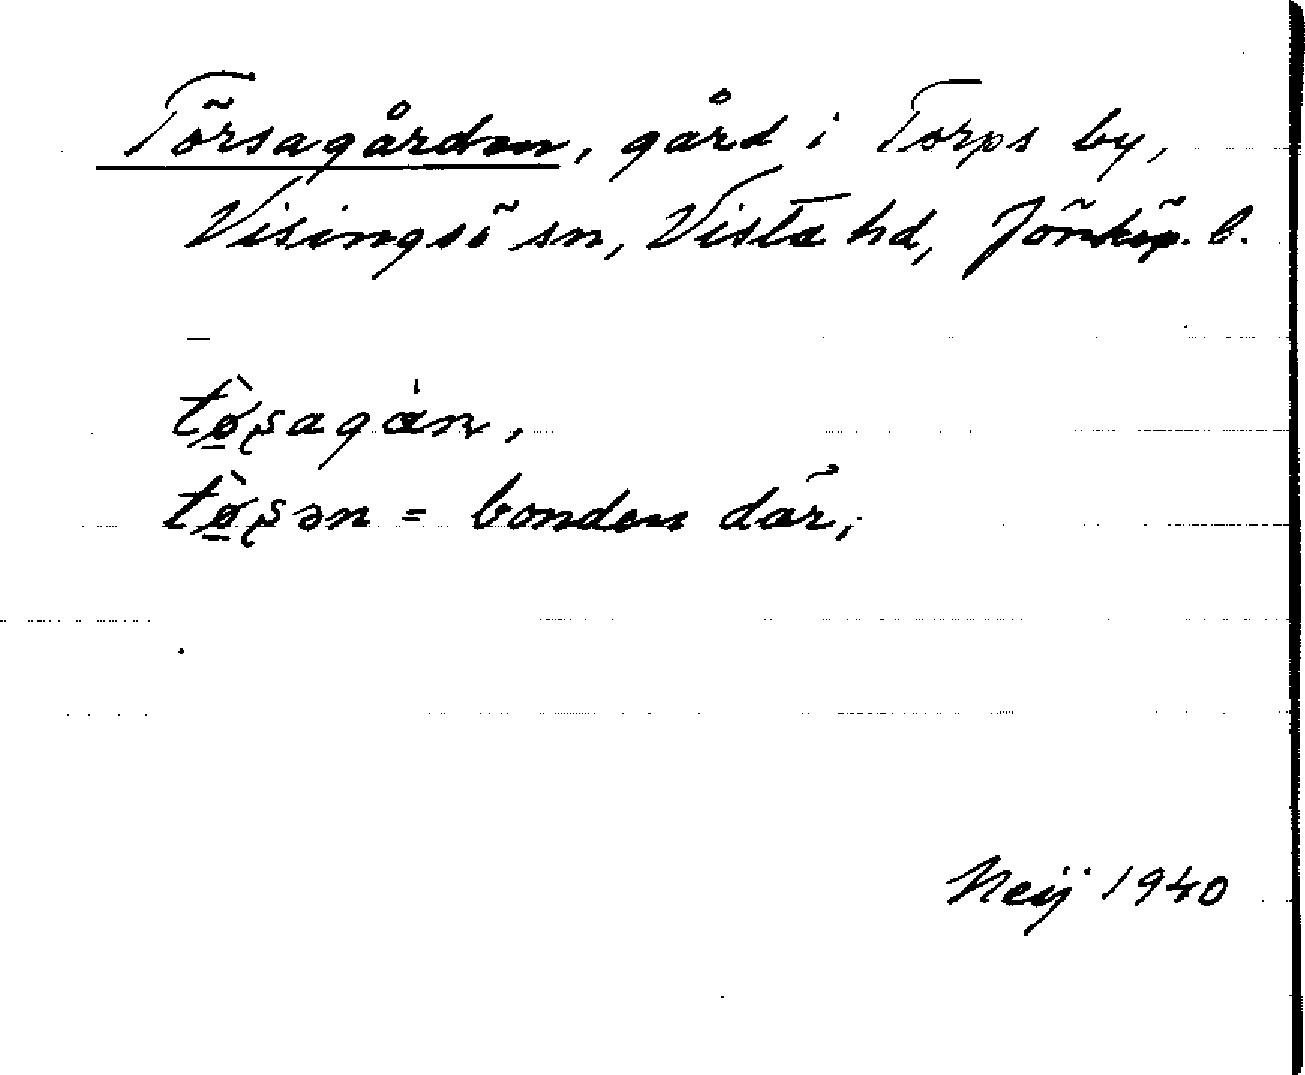 Törsagården, gård i Torps by,
Visingsö sn, Vista hd, Jönköp. l.
tø̠̀ʂagȧn,
tø̠̀ʂən = bonden där,
Neij 1940